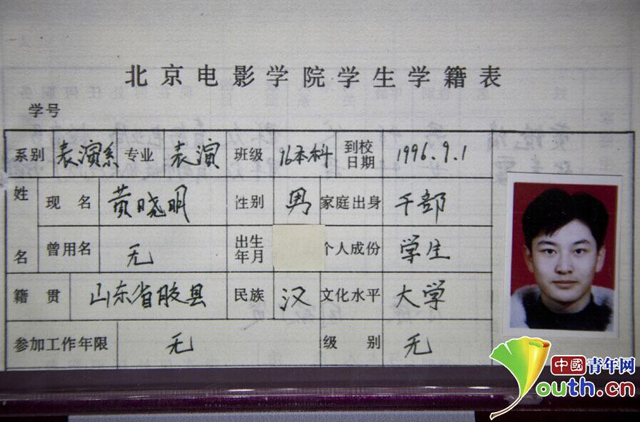 北京电影学院学生学籍表
学号
系别 表演系 专业 表演 班级 96本科 到校日期 1996.9.1
姓名 现名 黄晓明 性别 男 家庭出身 干部
曾用名 无 出生年月 个人成份 学生
籍贯 山东省胶县 民族 汉 文化水平 大学
参加工作年限 无 级别 无
中國青年网
youth.cn